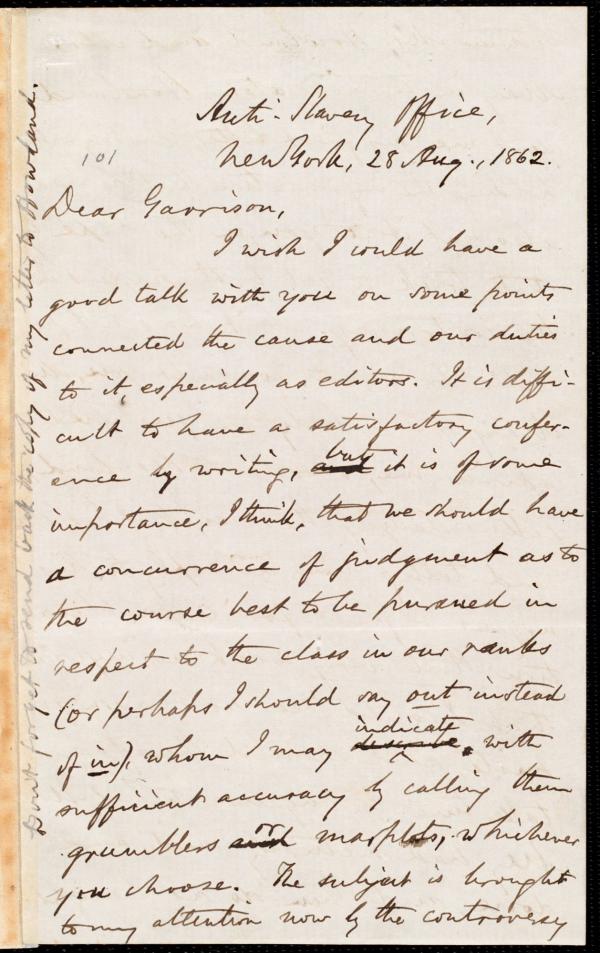 Anti-Slavery Office,
New York, 28 Aug., 1862.
101
Dear Garrison,
I wish I could have a
good talk with you on some points
connected the cause and our duties
to it, especially as editors. It is diffi-
cult to have a satisfactory confer-
ence by writing, and but it is of some
importance, I think, that we should have
a concurrence of judgment as to
the course best to be pursued in
respect to the class in our ranks
(or perhaps I should say out instead
of in), whom I may describe indicate, with
sufficient accuracy by calling them
grumblers and or marplots, whichever
you choose. The subject is brought
to my attention now by the controversy
Don't forget to send back the copy of my letter to Howland.